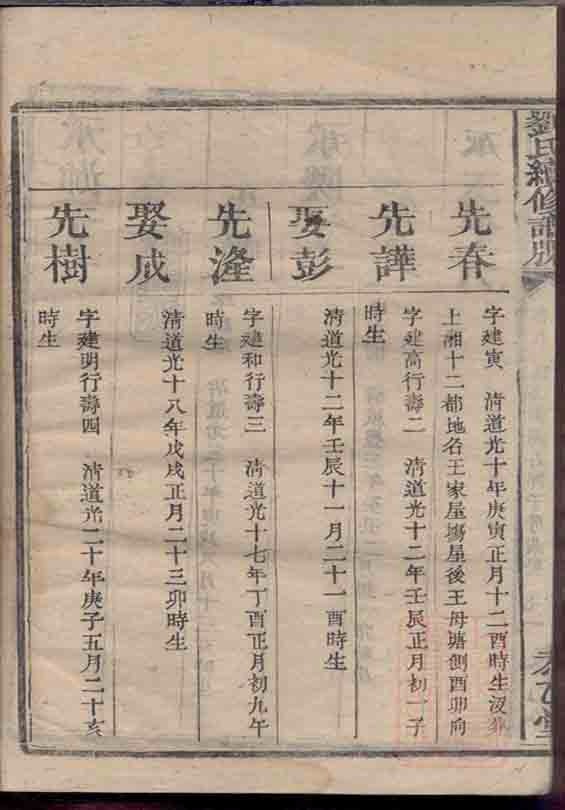 劉氏續修譜
先春
字建寅 清道光十年庚寅正月十二酉時生沒葬
上湘十二都地名王家屋塲星後王母塘側酉卯向
先譁
字建高行壽二 清道光十二年壬辰正月初一子
時生
娶彭
清道光十二年壬辰十一月二十一酉時生
先逄
字建和行壽三 清道光十七年丁酉正月初九午
時生
娶成
清道光十八年戊戌正月二十三卯時生
先樹
字建明行壽四 清道光二十年庚子五月二十亥
時生